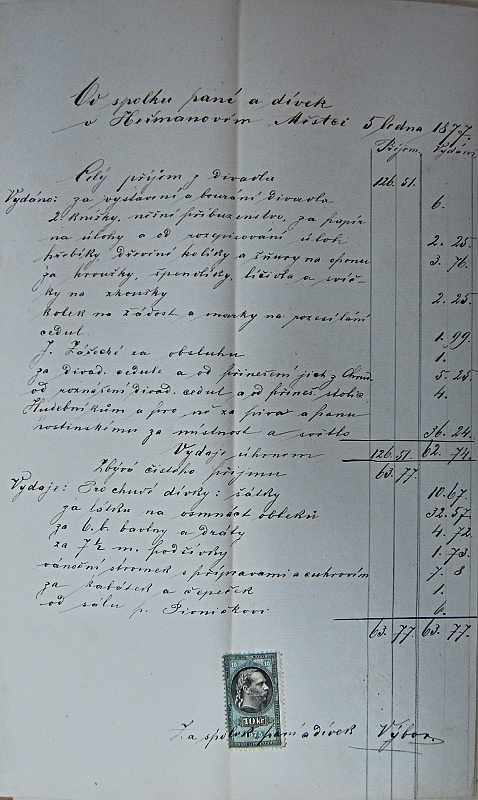 Od spolku paní a dívek
v Heřmanovém Městci 5 ledna 1877.
Příjem Vydání
Celý příjem z divadla 126. 51.
Vydáno: za vystavení a bourání divadla 6.
2. knížky, něžné příbuzenstvo, za papír
na úlohy a od rozepisování úloh 2. 25.
hřebíky dřevěné kolíky a šňury na oponu 3. 76.
za kroužky, špendlíky, líčidla a svíč-
ky na zkoušky 2. 25.
kolek na žádost a marky na rozesílání
cedul 1. 99.
J. za obsluhu 1.
za divad. cedule a od přinešení jich z Chrud. 5. 25
od roznášení divad. cedul a od přineš. stolic 4.
Hudebníkům a pro ně za piva a panu
hostinskému za místnost a světlo 36. 24.
Vydaje úhrnem 126. 51. 62. 74.
Zbývá čistého příjmu 63. 77.
Vydaje: Pro chudé dívky: šátky 10. 67.
za látku na osmnáct obleků 32. 57
za 6. b. bavlny a dráty 4. 72
za 7½ m. podšívky 1. 73.
vánoční stromek s přípravami a cukrovím 7. 8
za kabátek a čepeček 1.
od sálu p. 6.
63. 77. 63. 77.
10 10
10 Kr.
Za spolek paní a dívek Výbor.